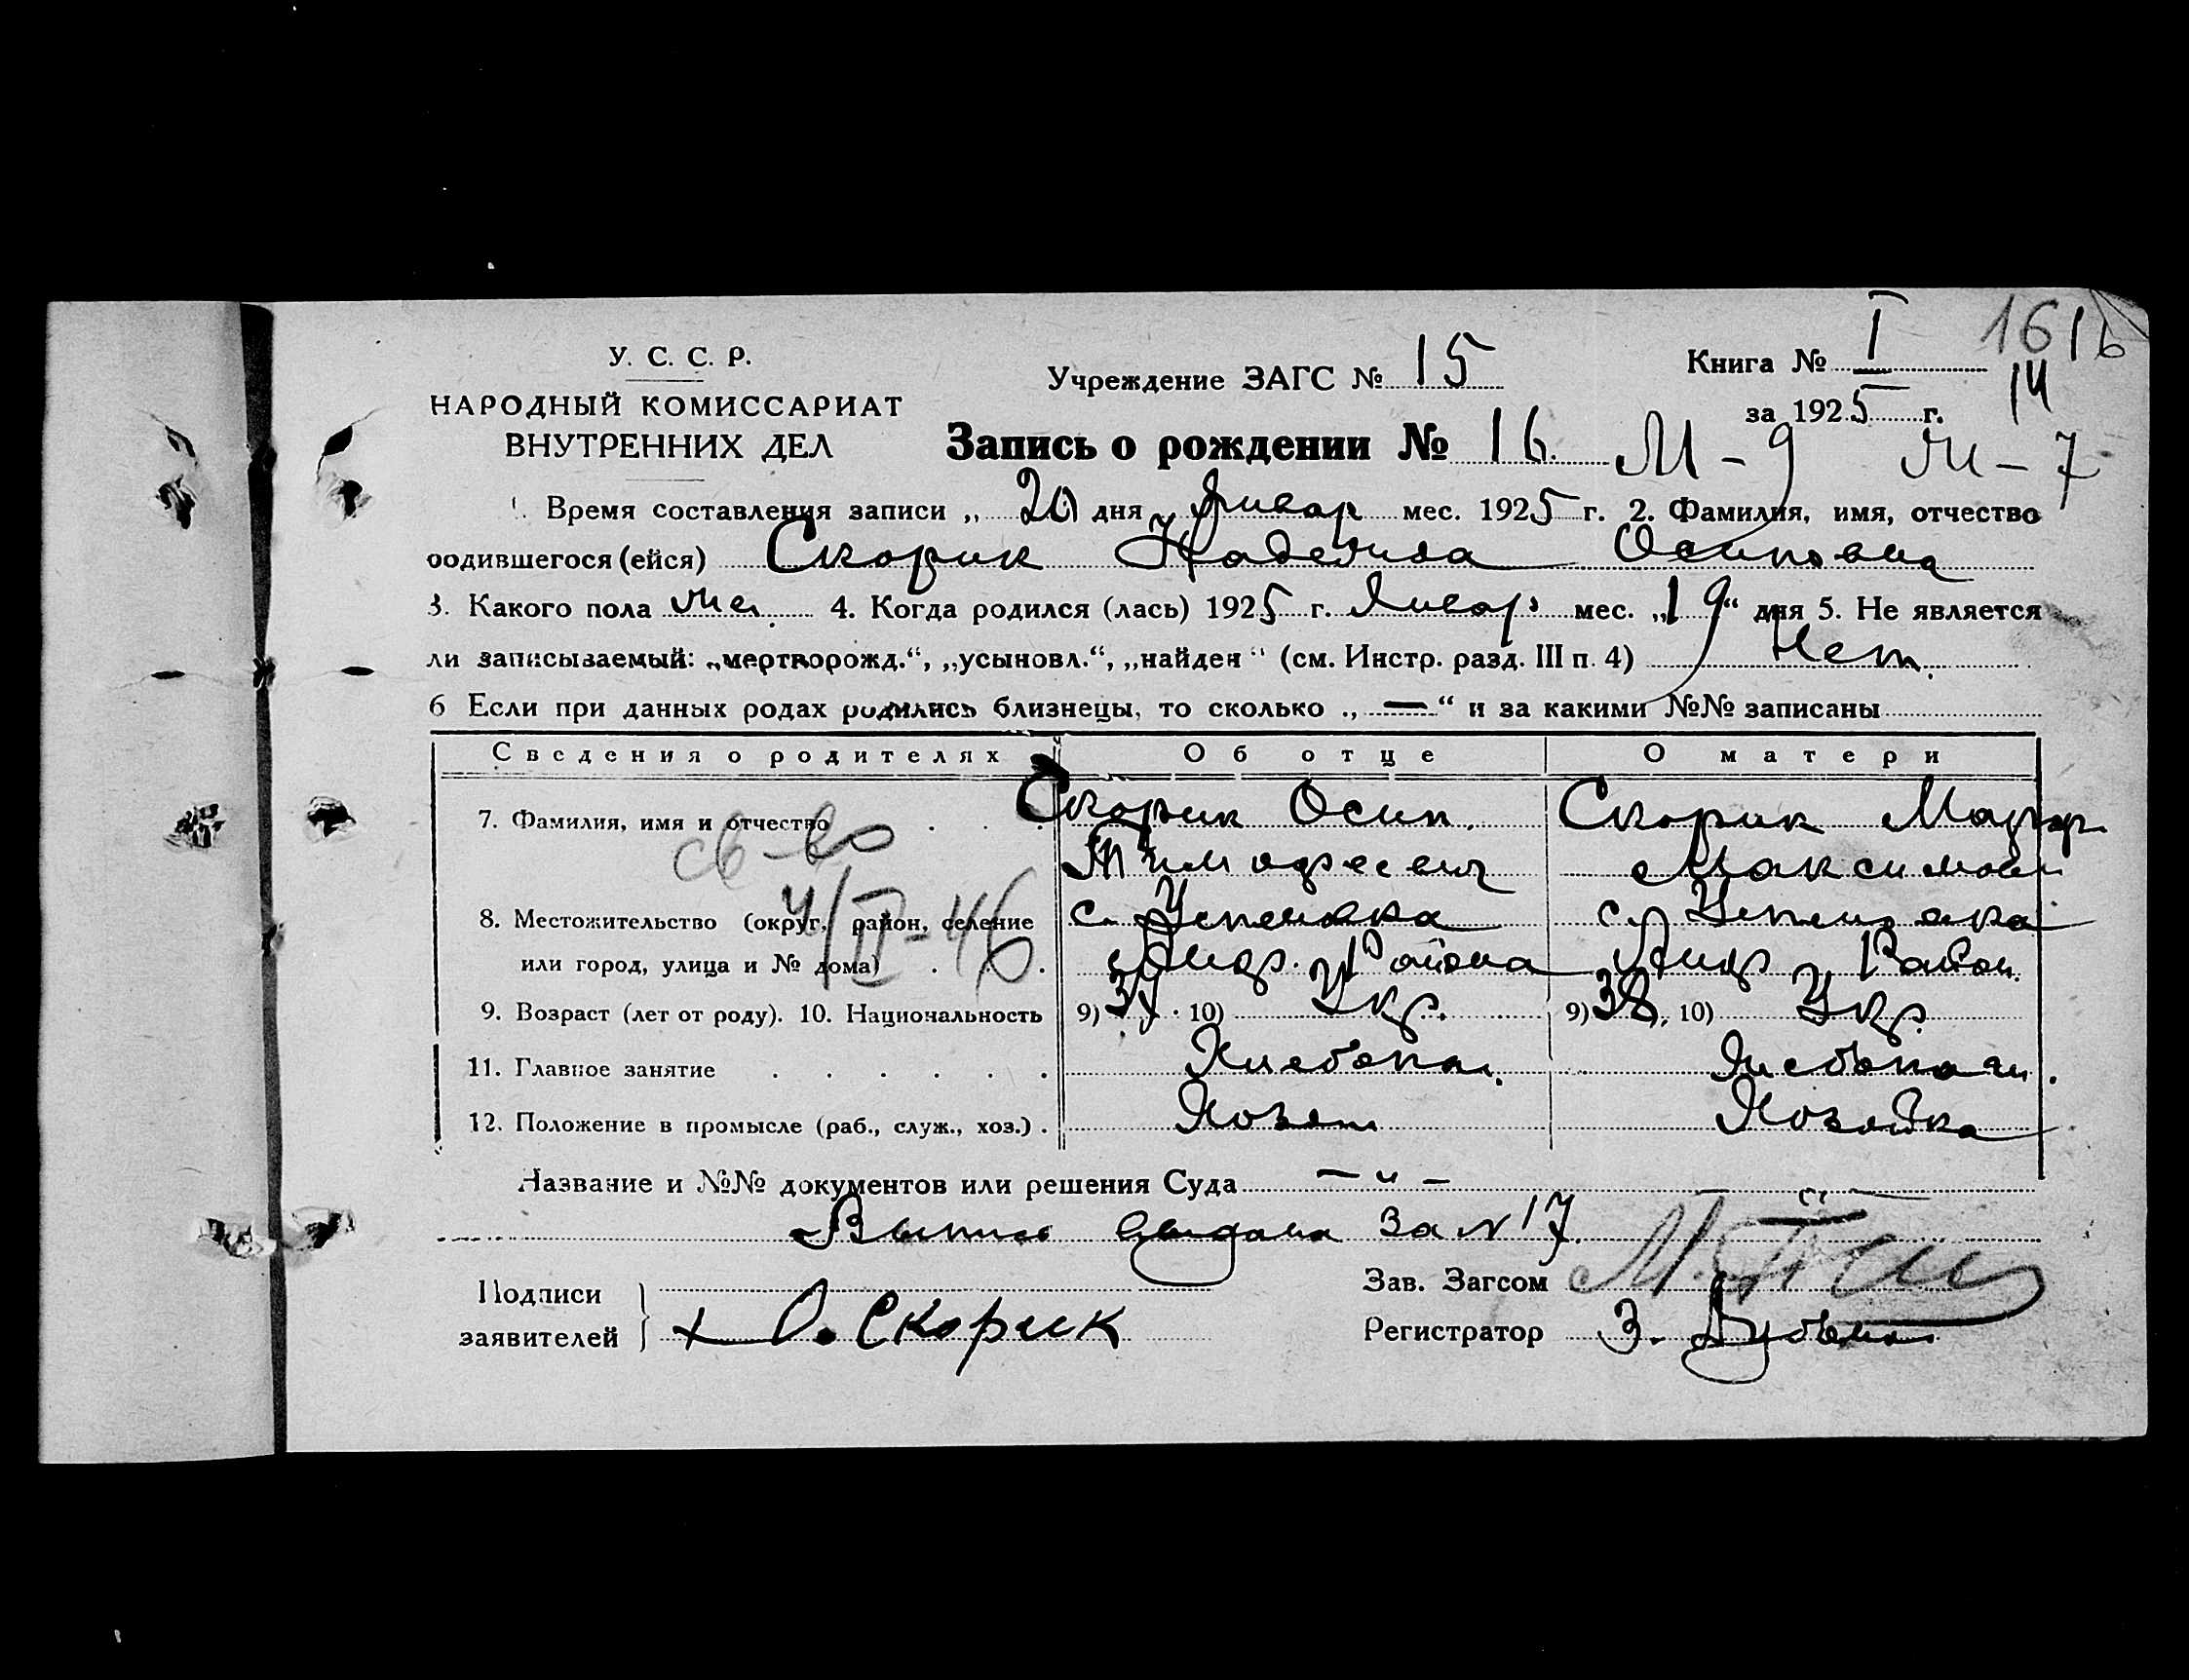 У. С. С. Р.
НАРОДНЫЙ КОМИССАРИАТ
ВНУТРЕННИХ ДЕЛ
Учреждение ЗАГС № 15
Книга № I
16 16
14
за 1925 г.
Запись о рождении № 16. М - 9 М - 7
1. Время составления записи „ 20 дня Январ мес. 1925 г. 2. Фамилия, имя, отчество
родившегося (ейся) Скорик Надежда Осиповна
3. Какого пола 4. Когда родился (лась) 1925 г. Январ мес. „19“ дня 5. Не является
ли записываемый: „мертворожд.“, „усыновл.“, „найден“ (см. Инстр. разд. III п. 4) Нет.
6 Если при данных родах родились близнецы, то сколько „ — “ и за какими №№ записаны
Сведения о родителях Об отце О матери
7. Фамилия, имя и отчество . . . Скорик Осип. Скорик
св-во Тимофеевич Максимов
8. Местожительство (округ, район, селение с. Успеновка с. Успеновка
или город, улица и № дома) . . . Района Район.
4/II-46
9. Возраст (лет от роду). 10. Национальность 9) 10) Укр. 9) 38, 10) Укр.
11. Главное занятие . . . . . . Хлебопаш. Хлебопаш.
12. Положение в промысле (раб., служ., хоз.) . Хозяин Хозяйка
Название и №№ документов или решения Суда — " —
Выпись выдана за № 17.
Подписи
заявителей } + О. Скорик
Зав. Загсом
Регистратор З.